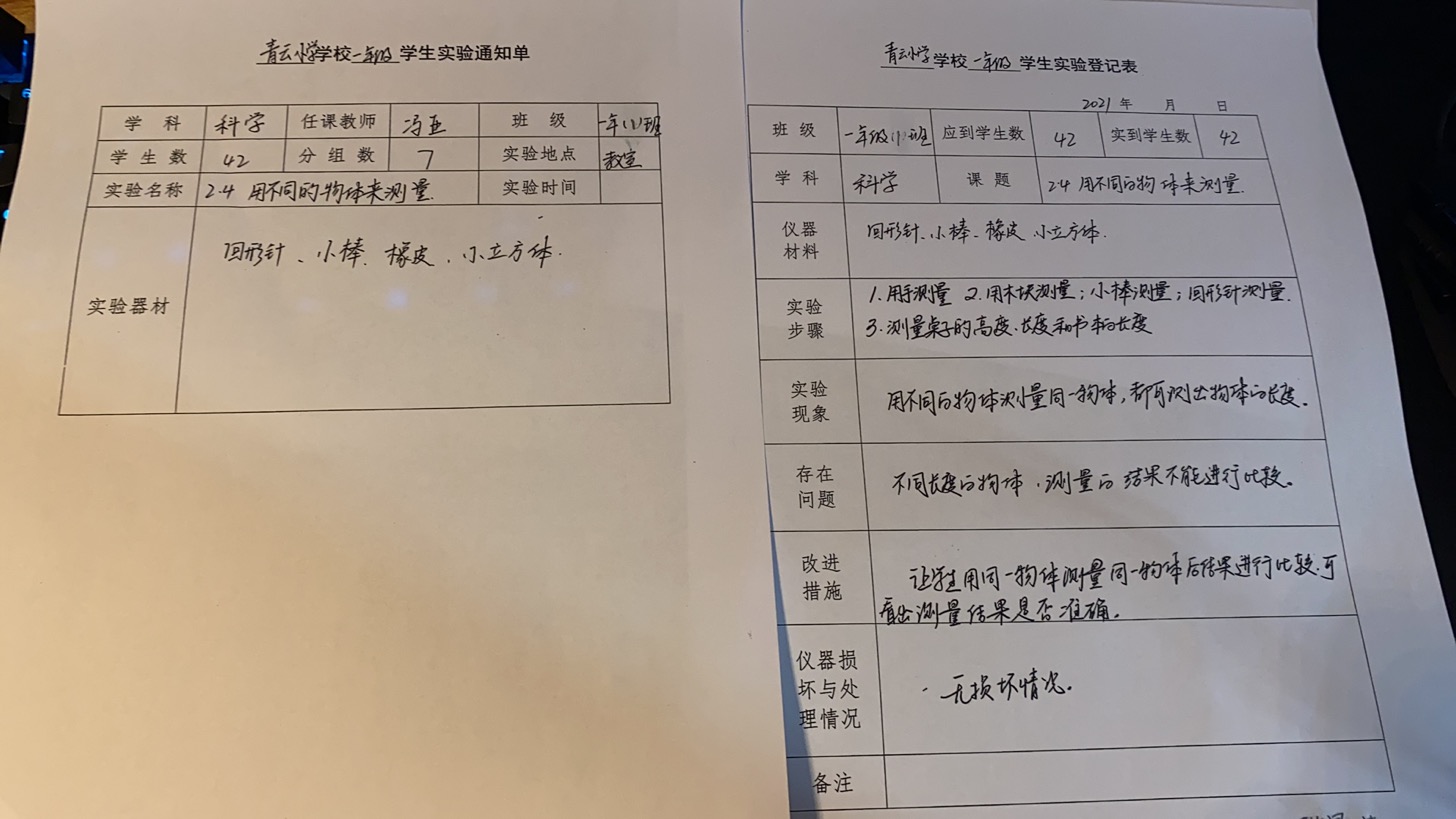 青云小学学校一年级学生实验通知单
学科 科学 任课教师 冯亚 班级 一年(1)班
学生数 42 分组数 7 实验地点 教室
实验名称 2.4 用不同的物体来测量. 实验时间
实验器材 回形针、小棒、橡皮、小立方体.
青云小学学校一年级学生实验登记表
2021年 月 日
班级 一年级(1)班 应到学生数 42 实到学生数 42
学科 科学 课题 2.4 用不同的物体来测量.
仪器材料 回形针、小棒、橡皮、小立方体.
实验步骤 1.用手测量 2.用木块测量;小棒测量;回形针测量.
3.测量桌子的高度、长度和书本的长度
实验现象 用不同的物体测量同一物体,都可测出物体的长度.
存在问题 不同长度的物体,测量的结果不能进行比较。
改进措施 让学生用同一物体测量同一物体后结果进行比较.可
看出测量结果是否准确.
仪器损坏与处理情况 无损坏情况.
备注